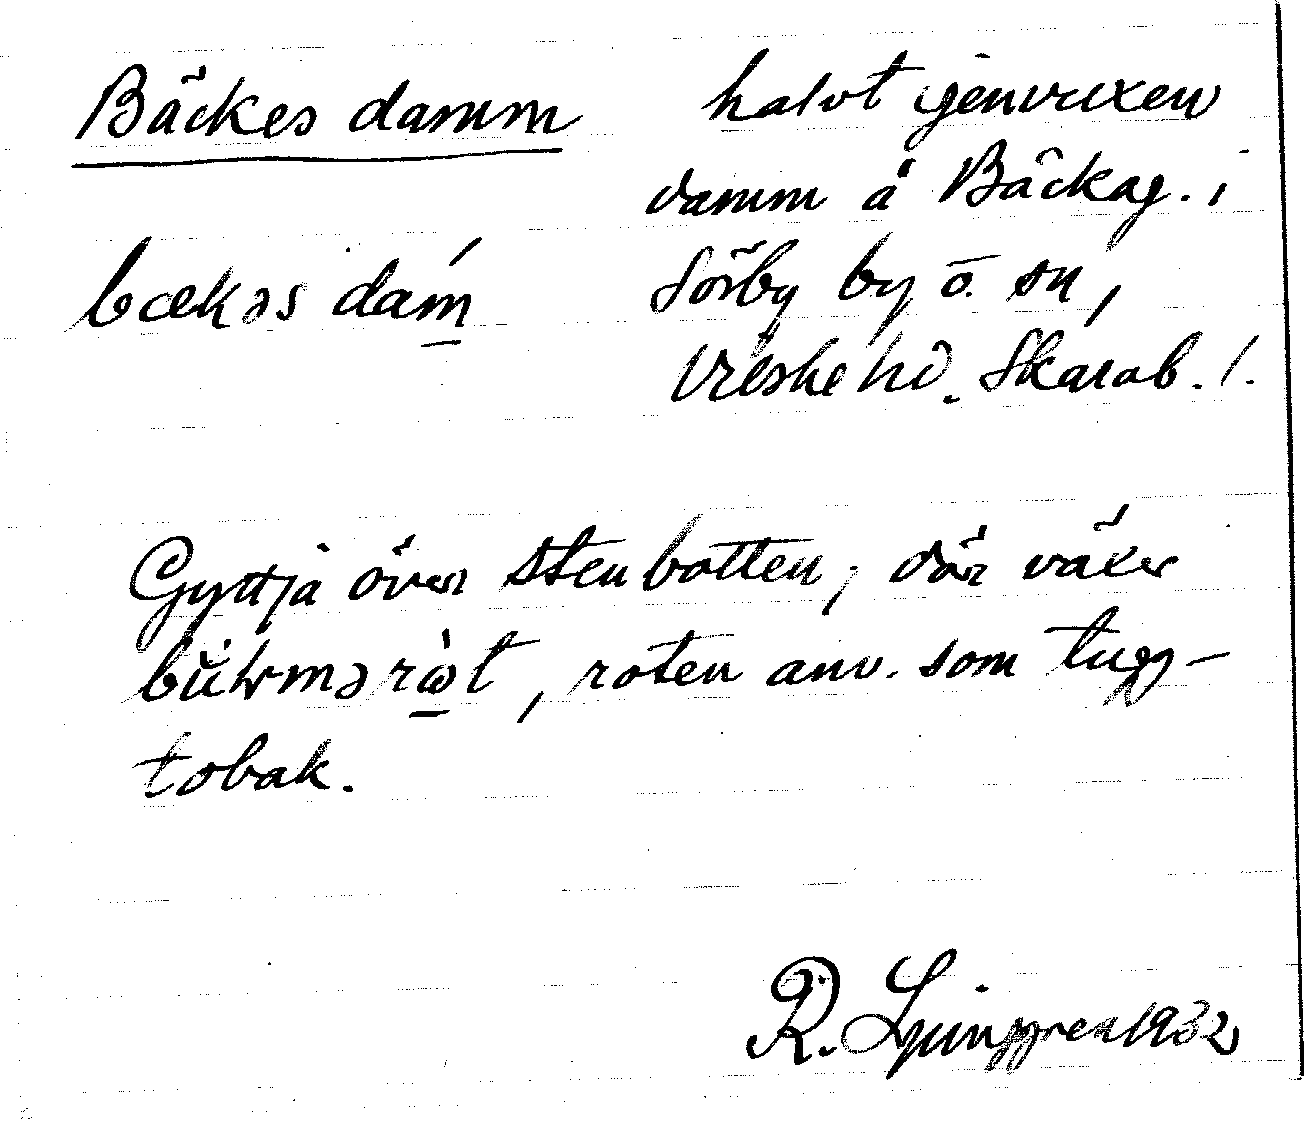 Bäckes damm
bækəs daḿ̲
halvt igenvuxen
damm å Bäckag. i
Sörby by o. sn,
Vilske hd. Skarab. l.
Gyttja över stenbotten, där växer
rotən anv. som tugg-
tobak.
R. Ljunggren 1932